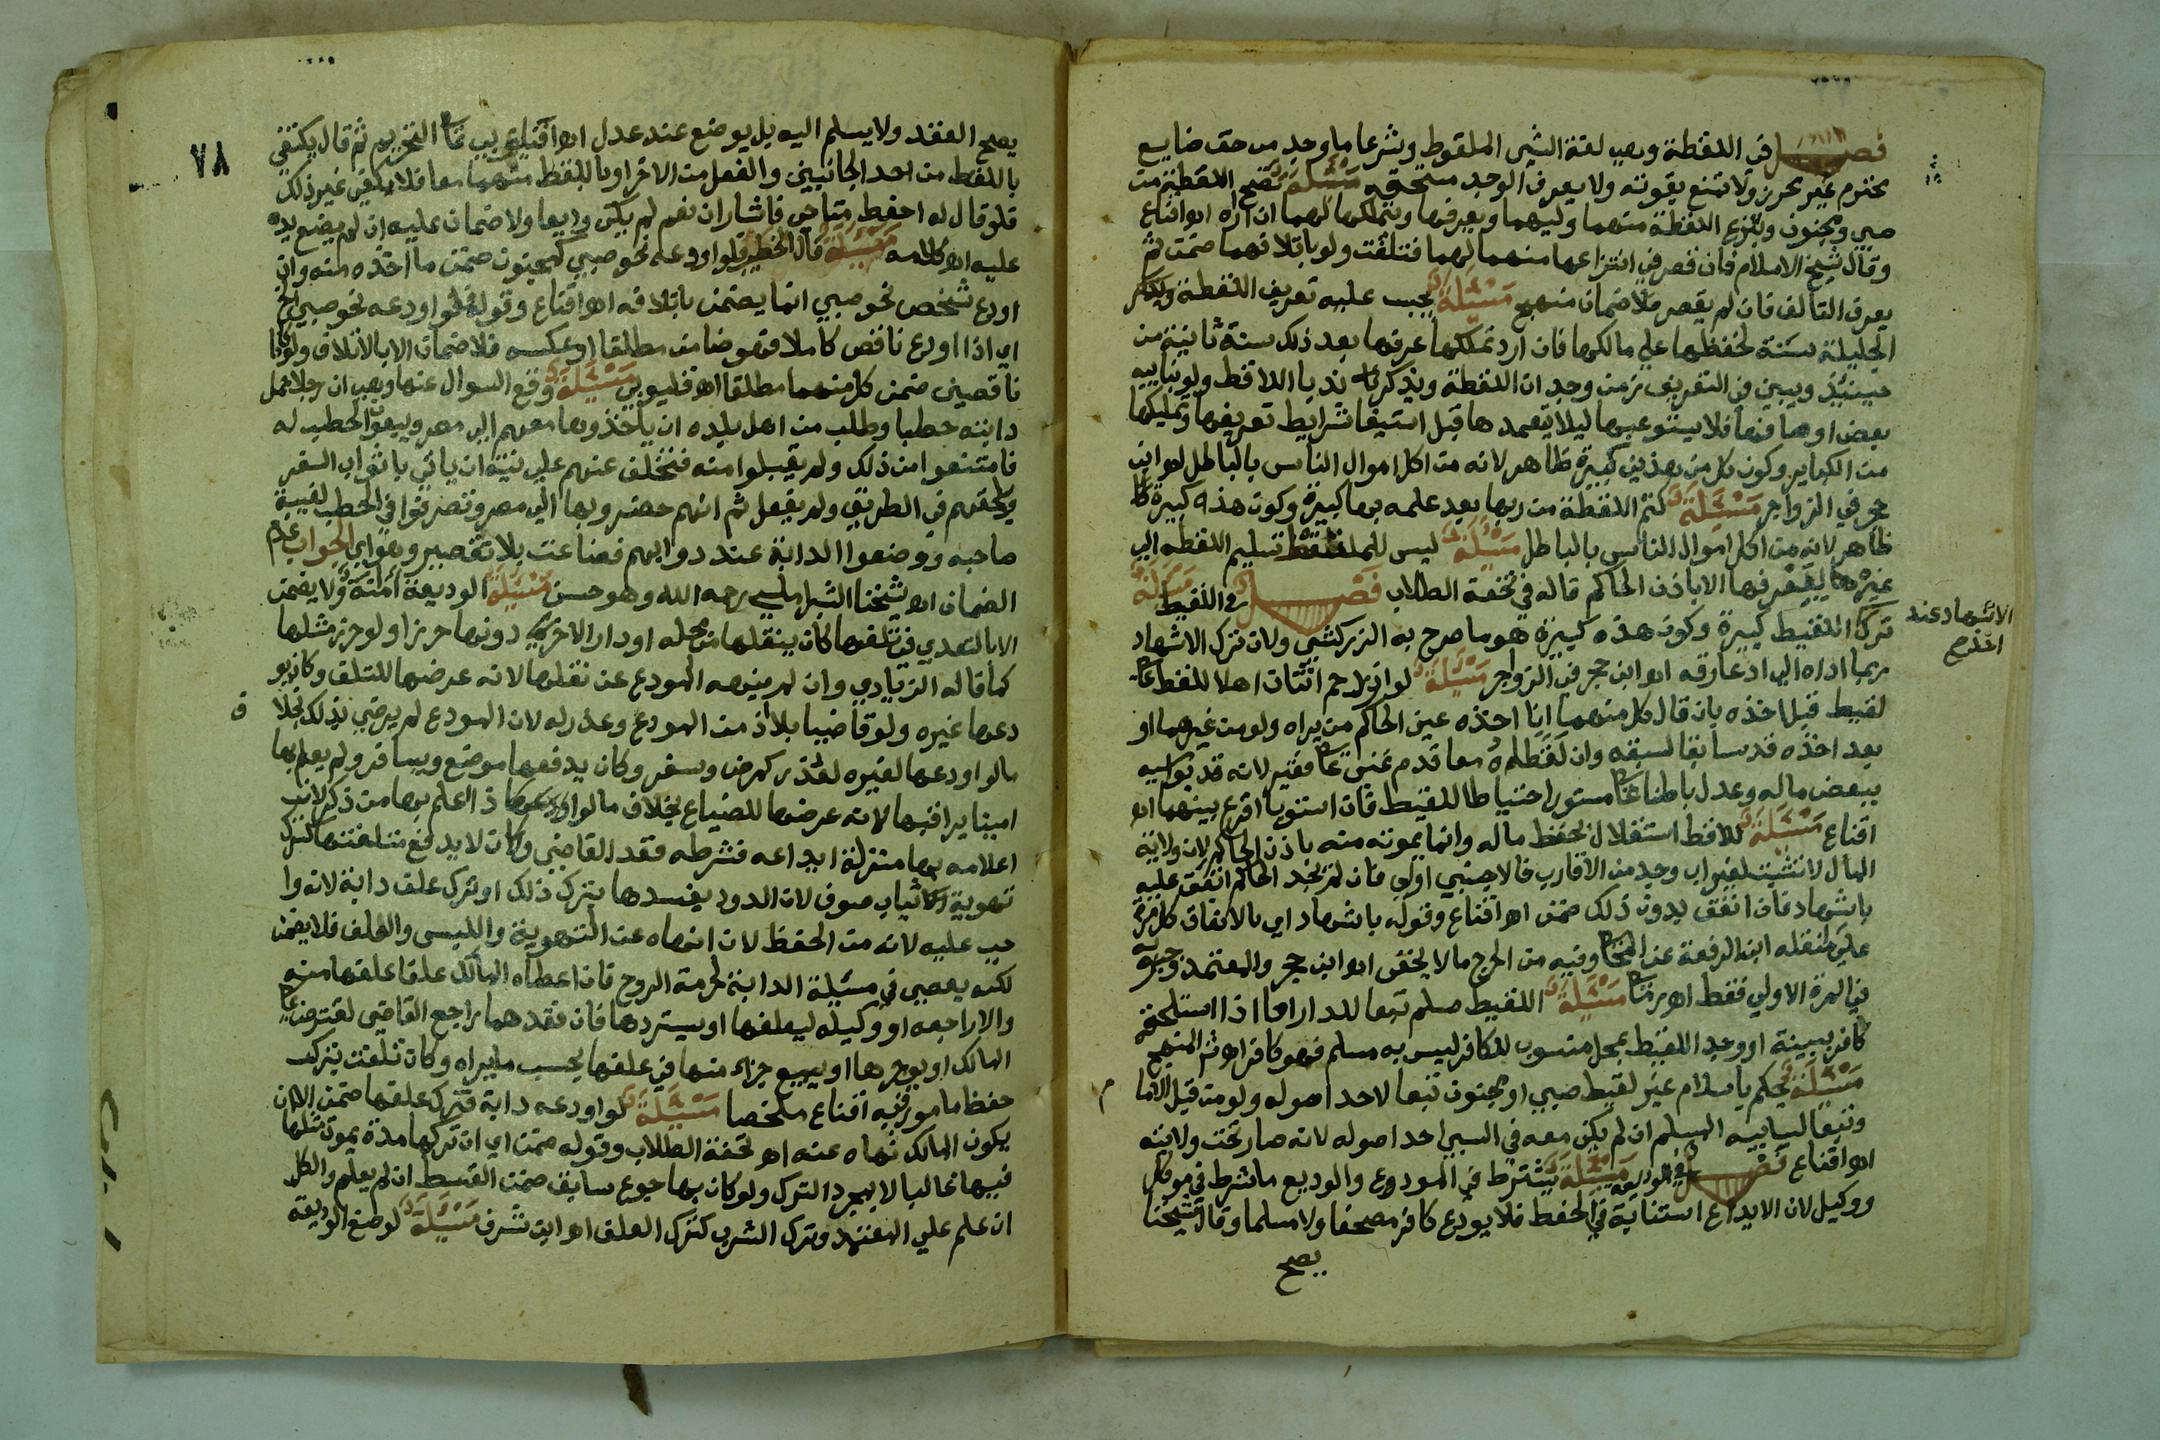 فصل في اللقطة وهي لغة الشي الملقوط وشرعا ما وجد من حق ضايع
محترم غير محرز ولا تمتنع بقوته ولا يعرف الواجد مستحقه مسئلة تصح اللقطة من
صبي ومجنون وينزع اللقطة منهما وليهما ويعرفها ويتملكها لهما ان اراه اهـ اقناع
وقال شيخ الاسلام فان قصر في انتزاعها منهما لهما فتلفت ولو باتلافهما ضمن ثم
يعرف التالف فان لم يقصر فلا ضمان منهج مسئلة يجب عليه تعريف اللقطة
الجليلة سنة لحفظها علي مالكها فان ارد تملكها عرفها بعد ذلك سنة ثانية من
حينئذ ويبين في التعريف زمن وجد ان اللقطة ويذكر ندبا اللاقط ولو بنايبه
بعض اوصافها فلا يستوعبها ليلا يعتمدها قبل استيفا شرايط تعريفها وتمليكها
من الكباير وكون كل من هذين كبيرة ظاهر لانه من اكل اموال الناس بالباطل اهـ ابن
حجر في الزواجر مسئلة كتم اللقطة من ربها بعد علمه بها كبيرة وكون هذه كبيرة
ظاهر لانه من اكل اموال الناس بالباطل مسئلة ليس للملتقط تسليم اللقطه الي
غيره ليعرفها الا باذن الحاكم قاله في تحفة الطلاب فصل في اللقيط مسئلة
ترك اللقيط كبيرة وكون هذه كبيرة هو ما صرح به الزركشي ولان ترك الاشهاد
ربما اداه الي ادعا رقه اهـ ابن حجر في الزواجر مسئلة لو ازدحم اثنان اهلا للقط
لقيط قبل اخذه بان قال كل منهما انا اخذه عين الحاكم من يراه ولو من غيرهما او
بعد اخذه قدم سابق لسبقه وان لقطاه معا قدم غني علي فقير لانه قد يواسيه
ببعض ماله وعدل باطنا علي مستور احتياطا للقيط فان استويا اقرع بينهما اهـ
اقناع مسئلة للاقط استقلال بحفظ ماله وانما يمونه منه باذن الحاكم لان ولاية
المال لا تثبت لغير اب وجد من الاقارب فالاجنبي اولي فان لم يجد الحاكم انفق عليه
باشهاد فان انفق بدون ذلك ضمن اهـ اقناع وقوله باشهاد اي بالانفاق كل مرة
علي ما نقله ابن الرفعة عن وفيه من الحرج ما لا يخفى اهـ ابن حجر والمعتمد وجوبه
في المرة الاولي فقط اهـ مسئلة اللقيط مسلم تبعا للدار اما اذا استلحقه
كافر ببينة او وجد اللقيط بمحل منسوب للكافر ليس به مسلم فهو كافر اهـ المنهج
مسئلة يحكم باسلام غير لقيط صبي او مجنون تبعا لاحد اصوله ولو من قبل الام
وتبعا لسابيه المسلم ان لم يكن معه في السبي احد اصوله لانه صار تحت ولايته
اهـ اقناع فصل في الوديعة مسئلة يشترط في المودع والوديع ما شرط في موكل
ووكيل لان الايداع استنابة في الحفظ فلا يودع كافر مصحفا ولا مسلما وقال شيخنا
يصح
الاشهاد عند
٧٨
يصح العقد ولا يسلم اليه بل يوضع عند عدل اهـ التحريم ثم قال يكتفي
باللفظ من احد الجانبين والفعل من الاخر او باللفظ منهما معا فلا يكفي غير ذلك
فلو قال له احفظ متاعي فاشار ان نعم لم يكن وديعا ولا ضمان عليه ان لم يضع يده
عليه اهـ كلامه مسئلة قال الخطيب ولو اودعه نحو صبي كمجنون ضمن ما اخذه منه وان
اودع شخص نحو صبي انما يضمن باتلافه اهـ اقناع وقوله فلو اودعه نحو صبي الخ
اي اذا اودع ناقص كاملا فهو ضامن مطلقا او عكسه فلا ضمان الا بالاتلاف ولو كانا
ناقصين ضمن كل منهما مطلقا اهـ قليوبي مسئلة وقع السوال عنها وهي ان رجلا حمل
دابته حطبا وطلب من اهل بلده ان ياخذوها معهم الي مصر ويبيعوا الحطب له
فامتنعوا من ذلك ولم يقبلوا منه فتخلف عنهم علي نية ان ياتي باثواب السفر
ويلحقهم في الطريق ولم يفعل ثم انهم حضروا بها الي مصر وتصرفوا في الحطب لغيبة
صاحبه ووضعوا الدابة عند دوابهم فضاعت بلا تقصير وهو اي الجواب عدم
الضمان اهـ شيخنا الشبراملسي رحمه الله وهو حسن مسئلة الوديعة امانة ولا يضمن
الا بالتعدي في تلفها كان ينقلها من محله او دار الاخري دونها حرزا ولو حرز مثلها
كما قاله الزيادي وان لم ينهه المودع عن نقلها لانه عرضها للتلف وكان يو
دعها غيره ولو قاضيا بلا اذن من المودع وعذر له لان المودع لم يرضي بذلك بخلا
ف
مالو اودعها لغيره لعذر كمرض وسفر وكان يدفعها موضع ويسافر ولم يعلم بها
امينا يراقبها لانه عرضها للضياع بخلاف مالو العلم بها من ذكر لان
اعلامه بها منزلة ايداعه فشرطه فقد القاضي وكان لا يدفع متلفاتها كترك
تهوية ثياب صوف لان الدود يفسدها بترك ذلك او ترك علف دابة لانه وا
جب عليه لانه من الحفظ لان انهاه عن التهوية واللبس والعلف فلا يضمن
لكنه يعصي في مسئلة الدابة لحرمة الروح فان اعطاه المالك علفا علفها منه
والا راجعه او وكيله ليعلفها او يستردها فان فقدهما راجع القاضي لقترض علي
المالك او يوجرها او يبيع جزء منها في علفها بحسب ما يراه وكان تلفت بترك
حفظ مامور فيه اقناع ملخصا مسئلة لو اودعه دابة فترك علفها ضمن الا ان
يكون المالك نهاه عنه اهـ تحفة الطلاب وقوله ضمن اي ان تركها مدة يموت مثلها
فيها غالبا لا بمجرد الترك ولو كان بها جوع سابق ضمن القسط ان لم يعلم والكل
ان علم علي المعتمد وترك الشرب كترك العلف اهـ ابن شرف مسئلة لو ضع الوديعة